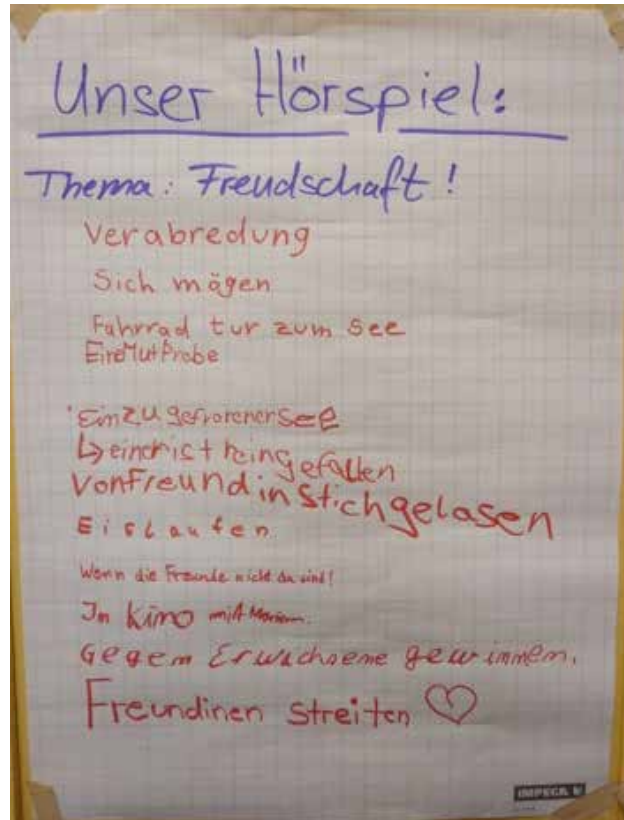 Unser Hörspiel:
Thema: Freudschaft!
Verabredung
Sich mögen
Fahrrad tur zum See
Eine Mut Probe
Ein zu gefrorener See
↳ einer ist reingefallen
Von Freund in Stich gelasen
Eislaufen
Wenn die Freunde nicht da sind!
Im Kino mit
Gegem Erwachsene gewinnen.
Freundinen streiten ♡
IMPEGA